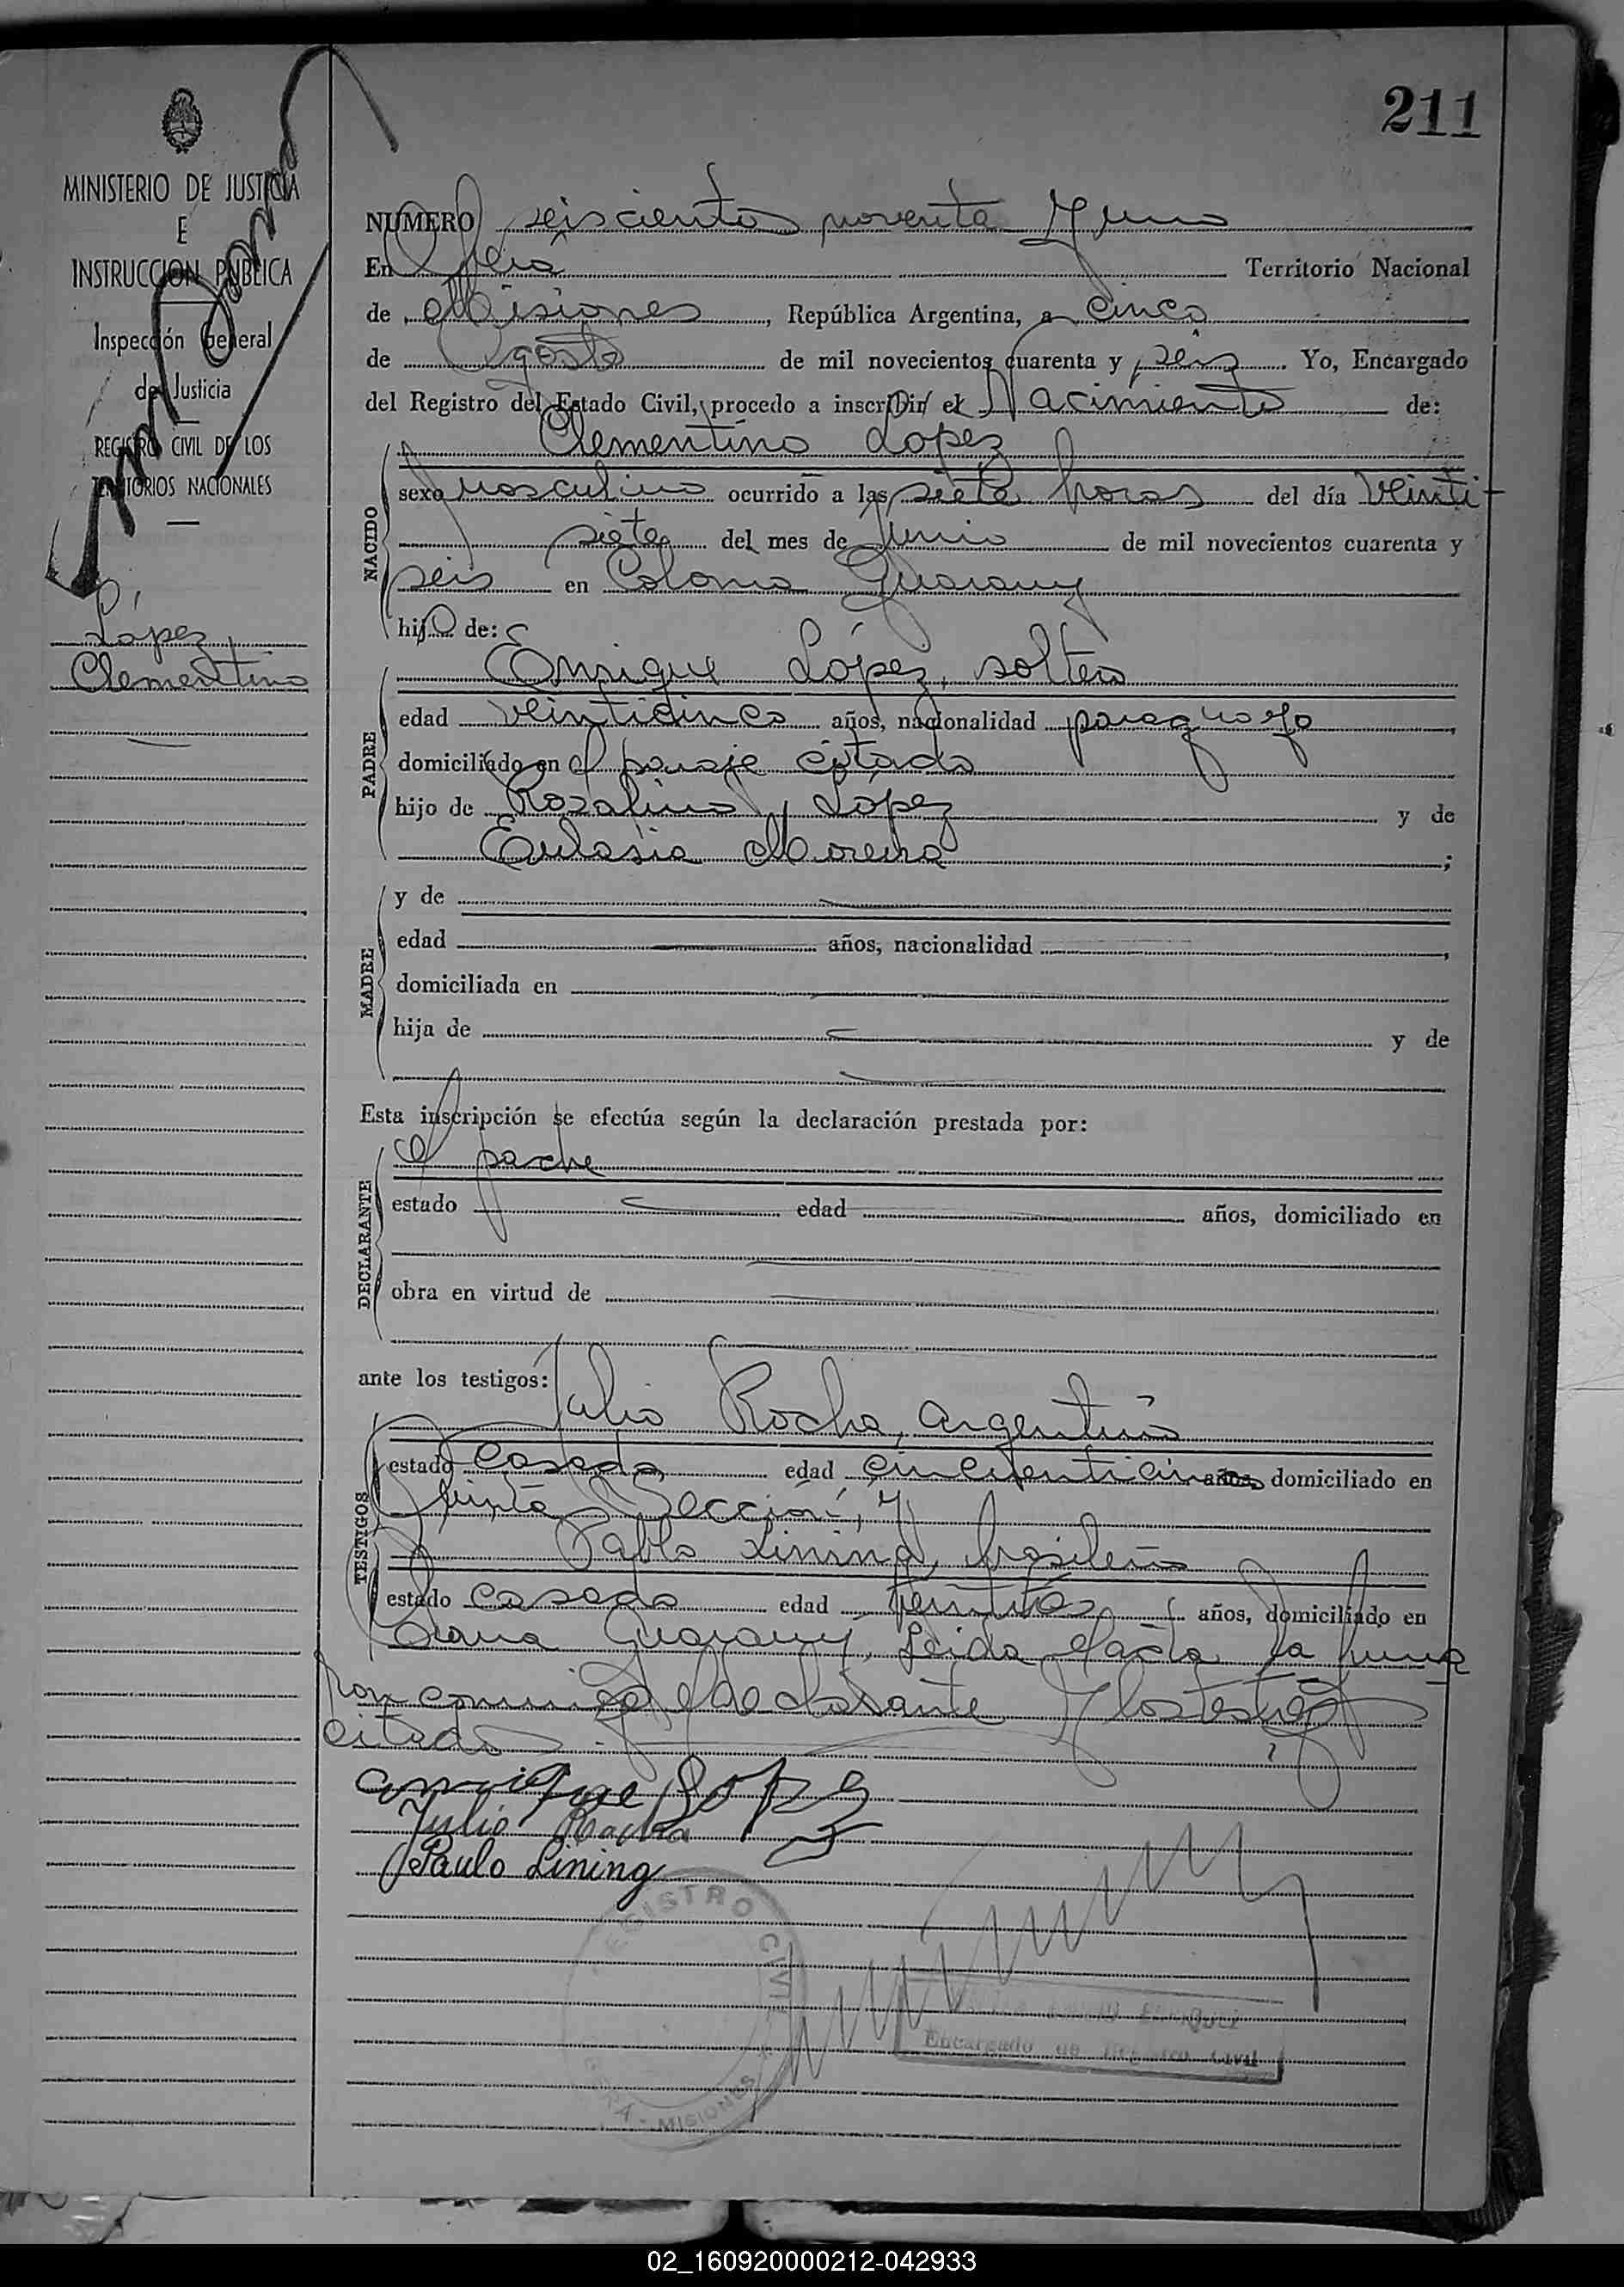 211
MINISTERIO DE JUSTICIA
E
INSTRUCCION PUBLICA
Inspección General
de Justicia
REGISTRO CIVIL DE LOS
TERRITORIOS NACIONALES
López
Clementino
NUMERO seiscientos noventa y uno
En Oberá Territorio Nacional
de Misiones, República Argentina, a cinco
de Agosto de mil novecientos cuarenta y seis. Yo, Encargado
del Registro del Estado Civil, procedo a inscribir el Nacimiento de:
NACIDO
Clementino Lopez
sexo masculino ocurrido a las siete horas del día veinti-
siete del mes de Junio de mil novecientos cuarenta y
seis en Colonia Guarany
hijo de:
PADRE
Enrique López, soltero
edad veinticinco años, nacionalidad paraguayo
domiciliado en el paraje citado
hijo de Rosalino López y de
Eulasia Moreira;
MADRE
y de
edad años, nacionalidad
domiciliada en
hija de y de
Esta inscripción se efectúa según la declaración prestada por:
DECLARANTE
el padre
estado edad años, domiciliado en
obra en virtud de
ante los testigos:
TESTIGOS
Julio Rocha, argentino
estado casado edad años domiciliado en
quinta Sección, y
Pablo Lining, brasileño
estado casado edad treintitres años, domiciliado en
Guarany, Leida el acta la firma
ron conmigo el declarante y los testigos
citados.
enrique Lopez
Julio Rocha
Paulo Lining
REGISTRO CIVIL
MISIONES
Encargado de Registro Civil
02_160920000212-042933